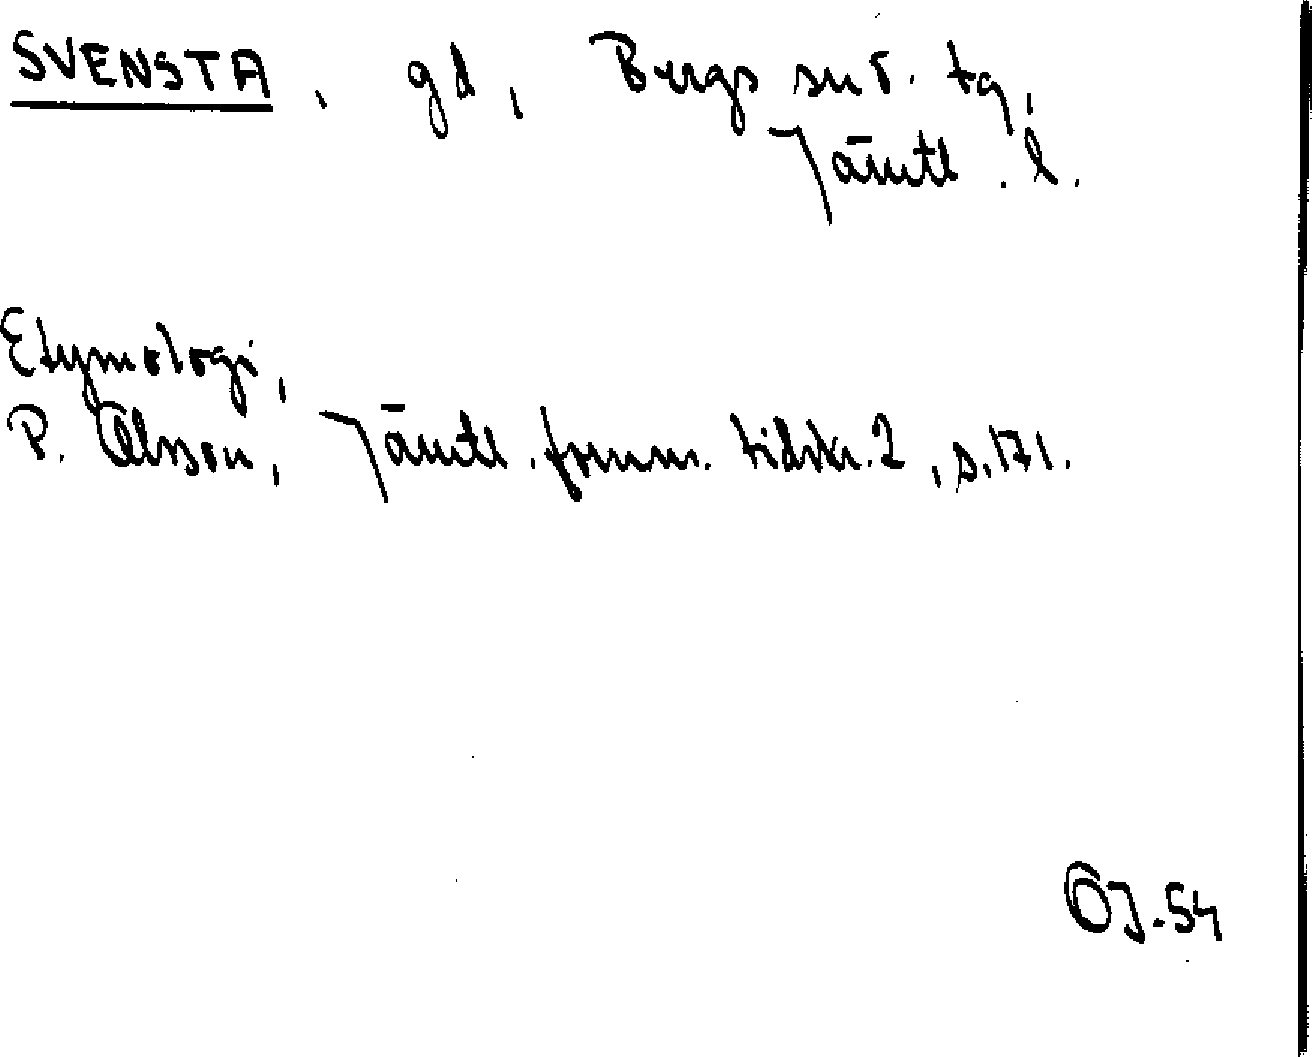 SVENSTA, gd, Bergs sn o. tg,
Jämtl. l.
Etymologi,
P. Olsson, Jämtl. fornm. tidskr. 2, s. 171.
OJ-54